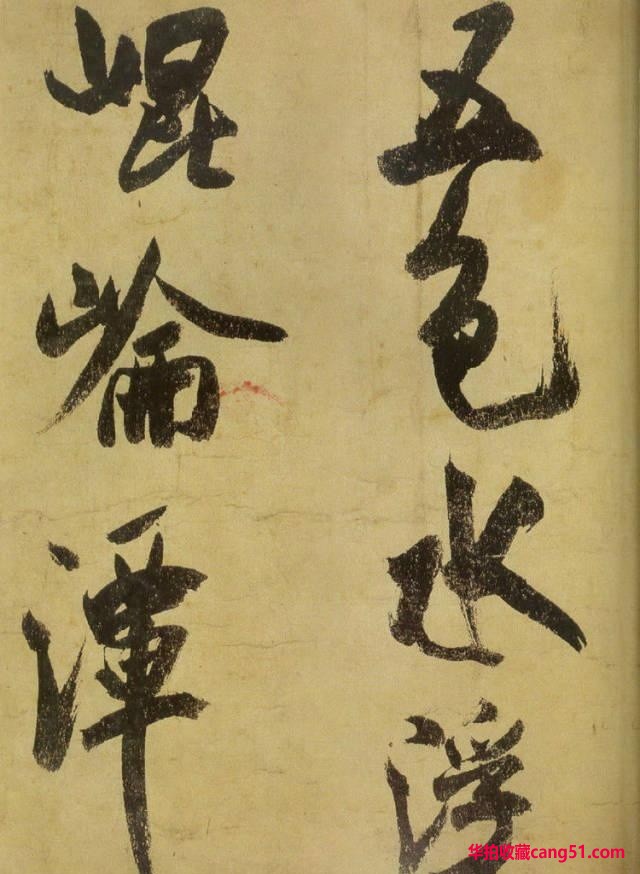 五色水浮
崐崘潭
华拍收藏cang51.com